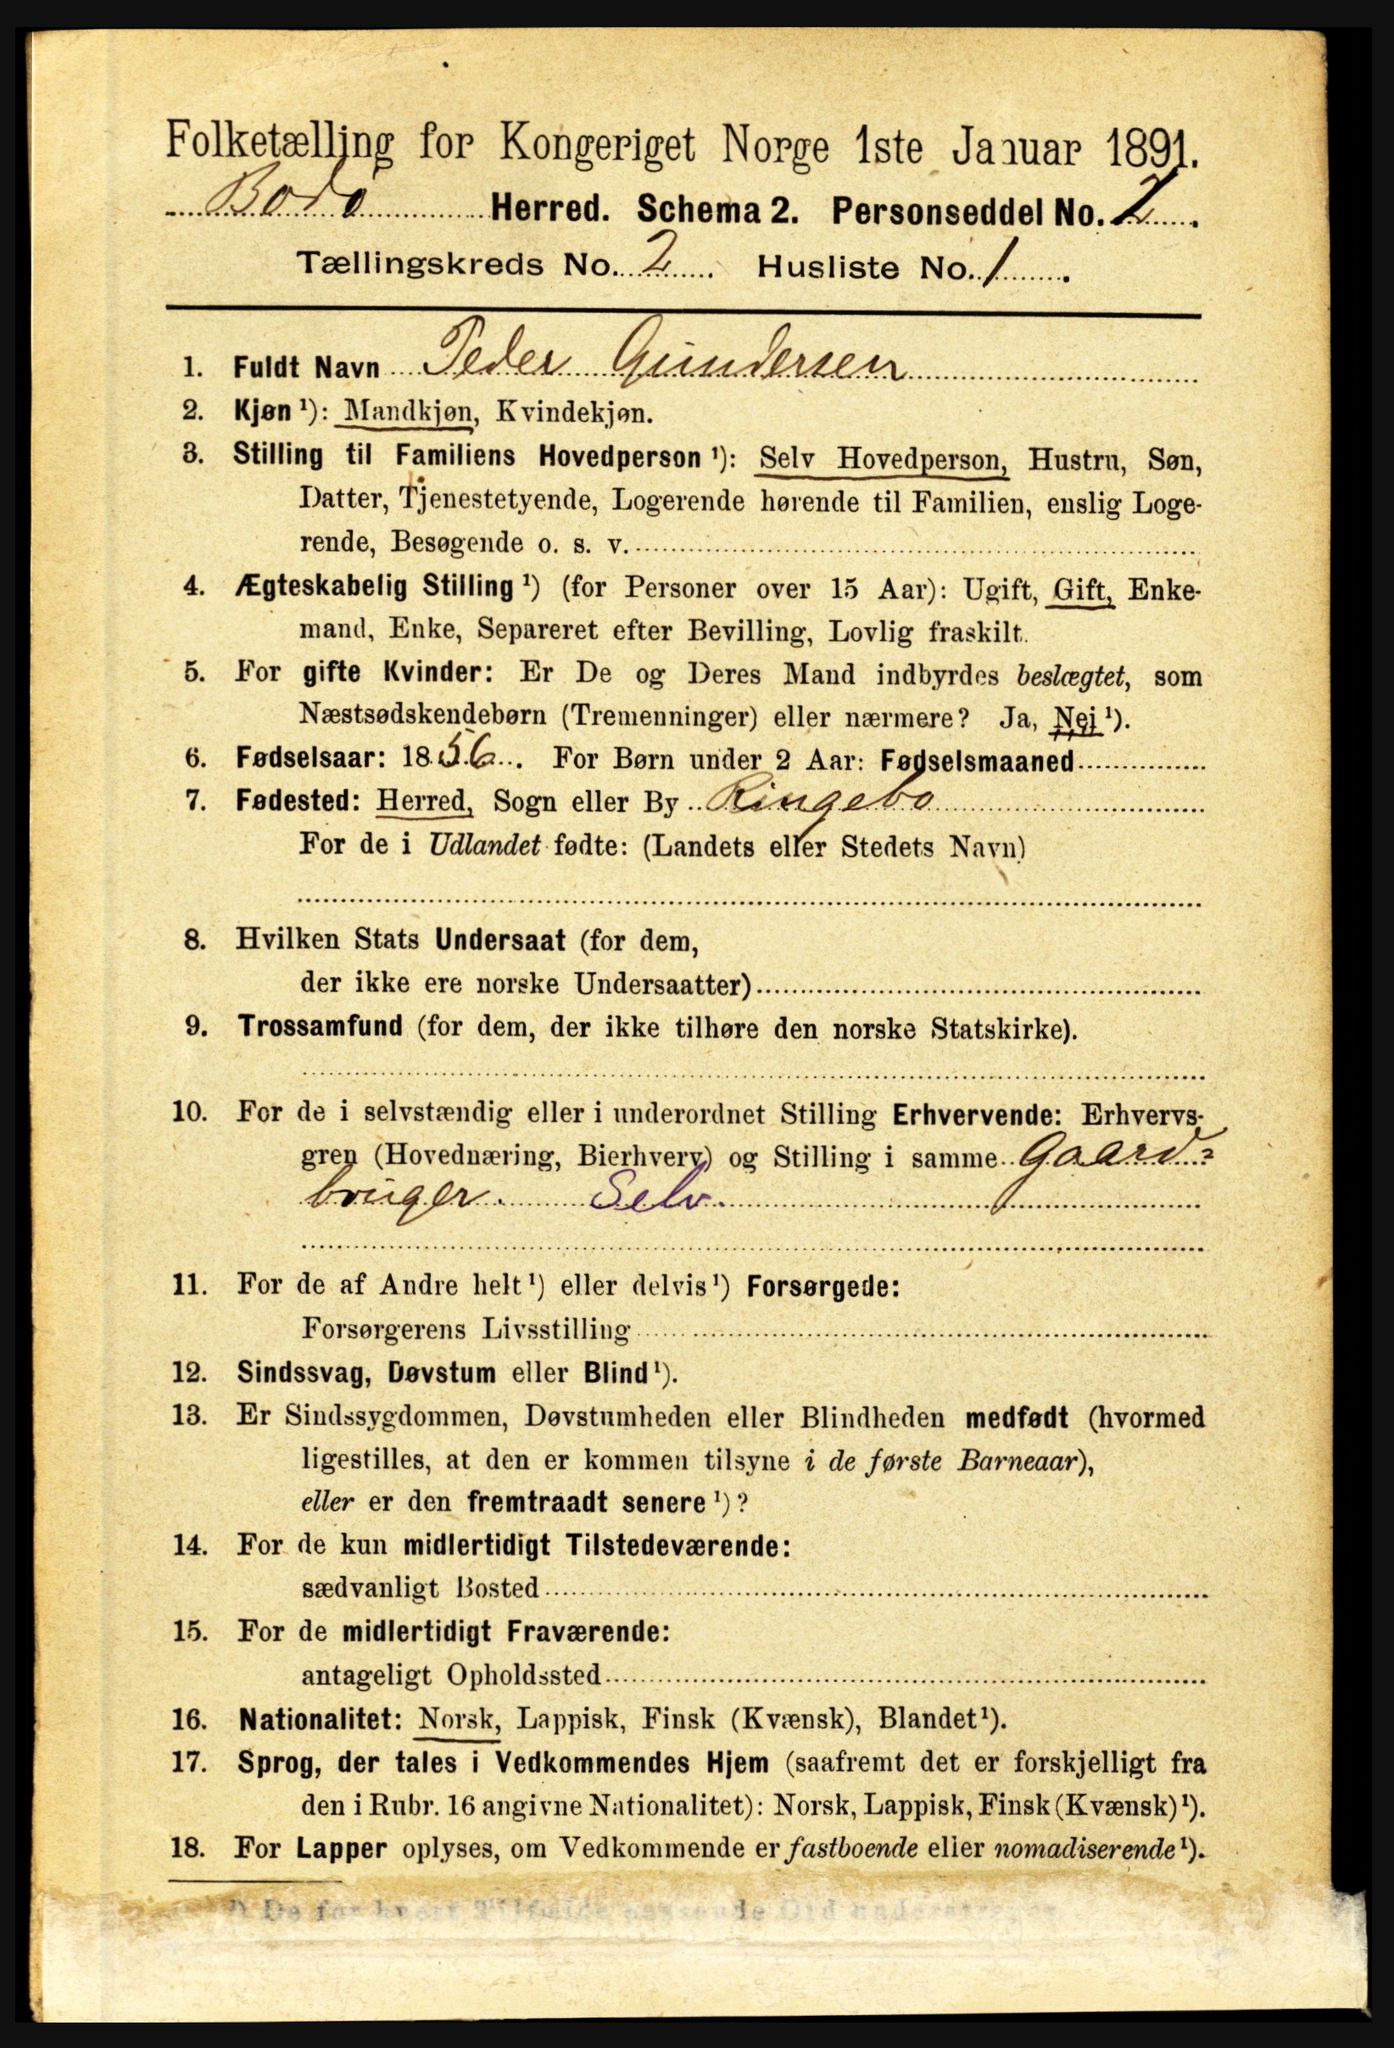 Folketælling for Kongeriget Norge 1ste Januar 1891.
Bodø Herred. Schema 2. Personseddel No. 2.
Tællingskreds No. 2. Husliste No. 1.
1. Fuldt Navn Peder Gundersen
2. Kjøn ¹): Mandkjøn, Kvindekjøn.
3. Stilling til Familiens Hovedperson ¹): Selv Hovedperson, Hustru, Søn,
Datter, Tjenestetyende, Logerende hørende til Familien, enslig Loge-
rende, Besøgende o. s. v.
4. Ægteskabelig Stilling ¹) (for Personer over 15 Aar): Ugift, Gift, Enke-
mand, Enke, Separeret efter Bevilling, Lovlig fraskilt.
5. For gifte Kvinder: Er De og Deres Mand indbyrdes beslægtet, som
Næstsødskendebørn (Tremenninger) eller nærmere? Ja, Nei ¹).
6. Fødselsaar: 1856. For Børn under 2 Aar: Fødselsmaaned
7. Fødested: Herred, Sogn eller By Ringebo
For de i Udlandet fødte: (Landets eller Stedets Navn)
8. Hvilken Stats Undersaat (for dem,
der ikke ere norske Undersaatter)
9. Trossamfund (for dem, der ikke tilhøre den norske Statskirke).
10. For de i selvstændig eller i underordnet Stilling Erhvervende: Erhvervs-
gren (Hovednæring, Bierhverv) og Stilling i samme Gaard-
bruger. Selv.
11. For de af Andre helt ¹) eller delvis ¹) Forsørgede:
Forsørgerens Livsstilling
12. Sindssvag, Døvstum eller Blind ¹).
13. Er Sindssygdommen, Døvstumheden eller Blindheden medfødt (hvormed
ligestilles, at den er kommen tilsyne i de første Barneaar),
eller er den fremtraadt senere ¹)?
14. For de kun midlertidigt Tilstedeværende:
sædvanligt Bosted
15. For de midlertidigt Fraværende:
antageligt Opholdssted
16. Nationalitet: Norsk, Lappisk, Finsk (Kvænsk), Blandet ¹).
17. Sprog, der tales i Vedkommendes Hjem (saafremt det er forskjelligt fra
den i Rubr. 16 angivne Nationalitet): Norsk, Lappisk, Finsk (Kvænsk) ¹).
18. For Lapper oplyses, om Vedkommende er fastboende eller nomadiserende ¹).
¹) De for hvert Tilfælde passende Ord understreges